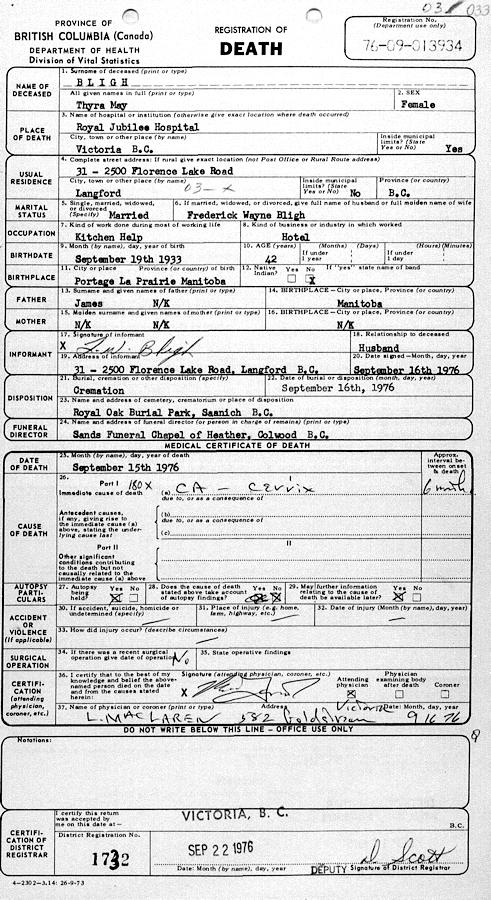 03 / 033
PROVINCE OF
BRITISH COLUMBIA (Canada)
DEPARTMENT OF HEALTH
Division of Vital Statistics
REGISTRATION OF
DEATH
Registration No.
(Department use only)
76-09-013934
NAME OF DECEASED
1. Surname of deceased (print or type)
BLIGH
All given names in full (print or type)
Thyra May
2. SEX
Female
PLACE OF DEATH
3. Name of hospital or institution (otherwise give exact location where death occurred)
Royal Jubilee Hospital
City, town or other place (by name)
Victoria B.C.
Inside municipal limits? (State Yes or No)
Yes
USUAL RESIDENCE
4. Complete street address: If rural give exact location (not Post Office or Rural Route address)
31 - 2500 Florence Lake Road
City, town or other place (by name)
Langford
03-x
Inside municipal limits? (State Yes or No)
No
Province (or country)
B.C.
MARITAL STATUS
5. Single, married, widowed, or divorced (Specify)
Married
6. If married, widowed, or divorced, give full name of husband or full maiden name of wife
Frederick Wayne Bligh
OCCUPATION
7. Kind of work done during most of working life
Kitchen Help
8. Kind of business or industry in which worked
Hotel
BIRTHDATE
9. Month (by name), day, year of birth
September 19th 1933
10. AGE (years)
42
(Months) (Days)
If under 1 year
(Hours) (Minutes)
If under 1 day
BIRTHPLACE
11. City or place Province (or country) of birth
Portage La Prairie Manitoba
12. Native Indian?
Yes No
X
If "yes" state name of band
FATHER
13. Surname and given names of father (print or type)
James N/K
14. BIRTHPLACE - City or place, Province (or country)
Manitoba
MOTHER
15. Maiden surname and given names of mother (print or type)
N/K N/K
16. BIRTHPLACE - City or place, Province (or country)
N/K
INFORMANT
17. Signature of informant
X F.W. Bligh
18. Relationship to deceased
Husband
19. Address of informant
31 - 2500 Florence Lake Road, Langford B.C.
20. Date signed - Month, day, year
September 16th 1976
DISPOSITION
21. Burial, cremation or other disposition (specify)
Cremation
22. Date of burial or disposition (month, day, year)
September 16th, 1976
23. Name and address of cemetery, crematorium or place of disposition
Royal Oak Burial Park, Saanich B.C.
FUNERAL DIRECTOR
24. Name and address of funeral director (or person in charge of remains) (print or type)
Sands Funeral Chapel of Heather, Colwood B.C.
MEDICAL CERTIFICATE OF DEATH
DATE OF DEATH
25. Month (by name), day, year of death
September 15th 1976
Approx. interval between onset & death
CAUSE OF DEATH
26.
Part I 180 X
Immediate cause of death
(a) CA - Cervix
6 months
due to, or as a consequence of
Antecedent causes, if any, giving rise to the immediate cause (a) above, stating the underlying cause last
(b)
due to, or as a consequence of
(c)
Part II
II
Other significant conditions contributing to the death but not causally related to the immediate cause (a) above
AUTOPSY PARTICULARS
27. Autopsy being held?
Yes No
X
28. Does the cause of death stated above take account of autopsy findings?
Yes No
X
29. May further information relating to the cause of death be available later?
Yes No
X
ACCIDENT OR VIOLENCE (If applicable)
30. If accident, suicide, homicide or undetermined (specify)
31. Place of injury (e.g. home, farm, highway, etc.)
32. Date of injury (Month (by name), day, year)
33. How did injury occur? (describe circumstances)
SURGICAL OPERATION
34. If there was a recent surgical operation give date of operation
No
35. State operative findings
CERTIFICATION (attending physician, coroner, etc.)
36. I certify that to the best of my knowledge and belief the above-named person died on the date and from the causes stated herein:
Signature (attending physician, coroner, etc.)
X
Attending physician
X
Physician examining body after death
Coroner
37. Name of physician or coroner (print or type)
L. MACLAREN
Address
582 Goldstream Victoria
Date: Month, day, year
9 16 76
DO NOT WRITE BELOW THIS LINE - OFFICE USE ONLY
Notations:
CERTIFICATION OF DISTRICT REGISTRAR
I certify this return was accepted by me on this date at -
VICTORIA, B. C.
B.C.
District Registration No.
1732
SEP 22 1976
Date: Month (by name), day, year
D. Scott
DEPUTY Signature of District Registrar
4-2302-3.14: 26-9-73